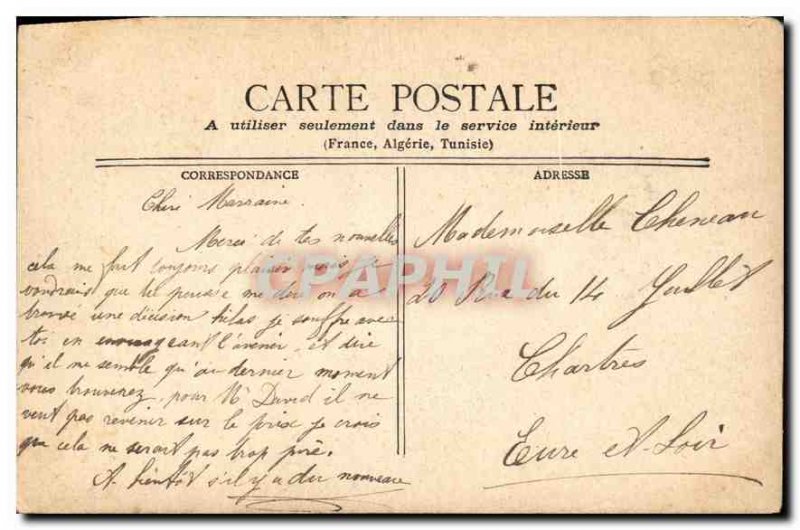 CARTE POSTALE
A utiliser seulement dans le service intérieur
(France, Algérie, Tunisie)
CORRESPONDANCE
Chère Marraine
Merci de tes nouvelles
cela me fait toujours plaisir mais je
voudrais que tu puisse me dire on a
trouvé une décision hélas je souffre avec
toi en envisageant l'avenir et dire
qu'il me semble qu'au dernier moment
vous trouverez, pour Mr David il ne
veut pas revenir sur le prix je crois
que cela ne serait pas trop
A bientôt s'il y a du nouveau
ADRESSE
Mademoiselle Cheneau
20 Rue du 14 Juillet
Chartres
Eure et-Loir
CPAPHIL